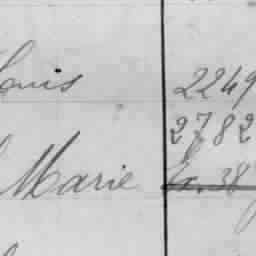 Louis 2249
2782
Marie Ex. 38